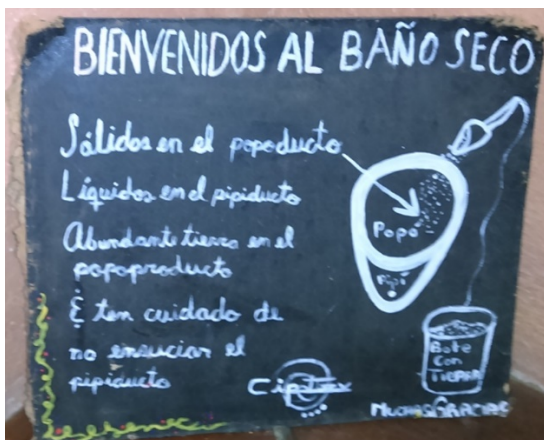 BIENVENIDOS AL BAÑO SECO
Sólidos en el popoducto
Líquidos en el pipiducto
Abundante tierra en el
popoproducto
& ten cuidado de
no ensuciar el
pipiducto
Popó
Pipí
Bote
Con
TIERRA
MUCHAS GRACIAS